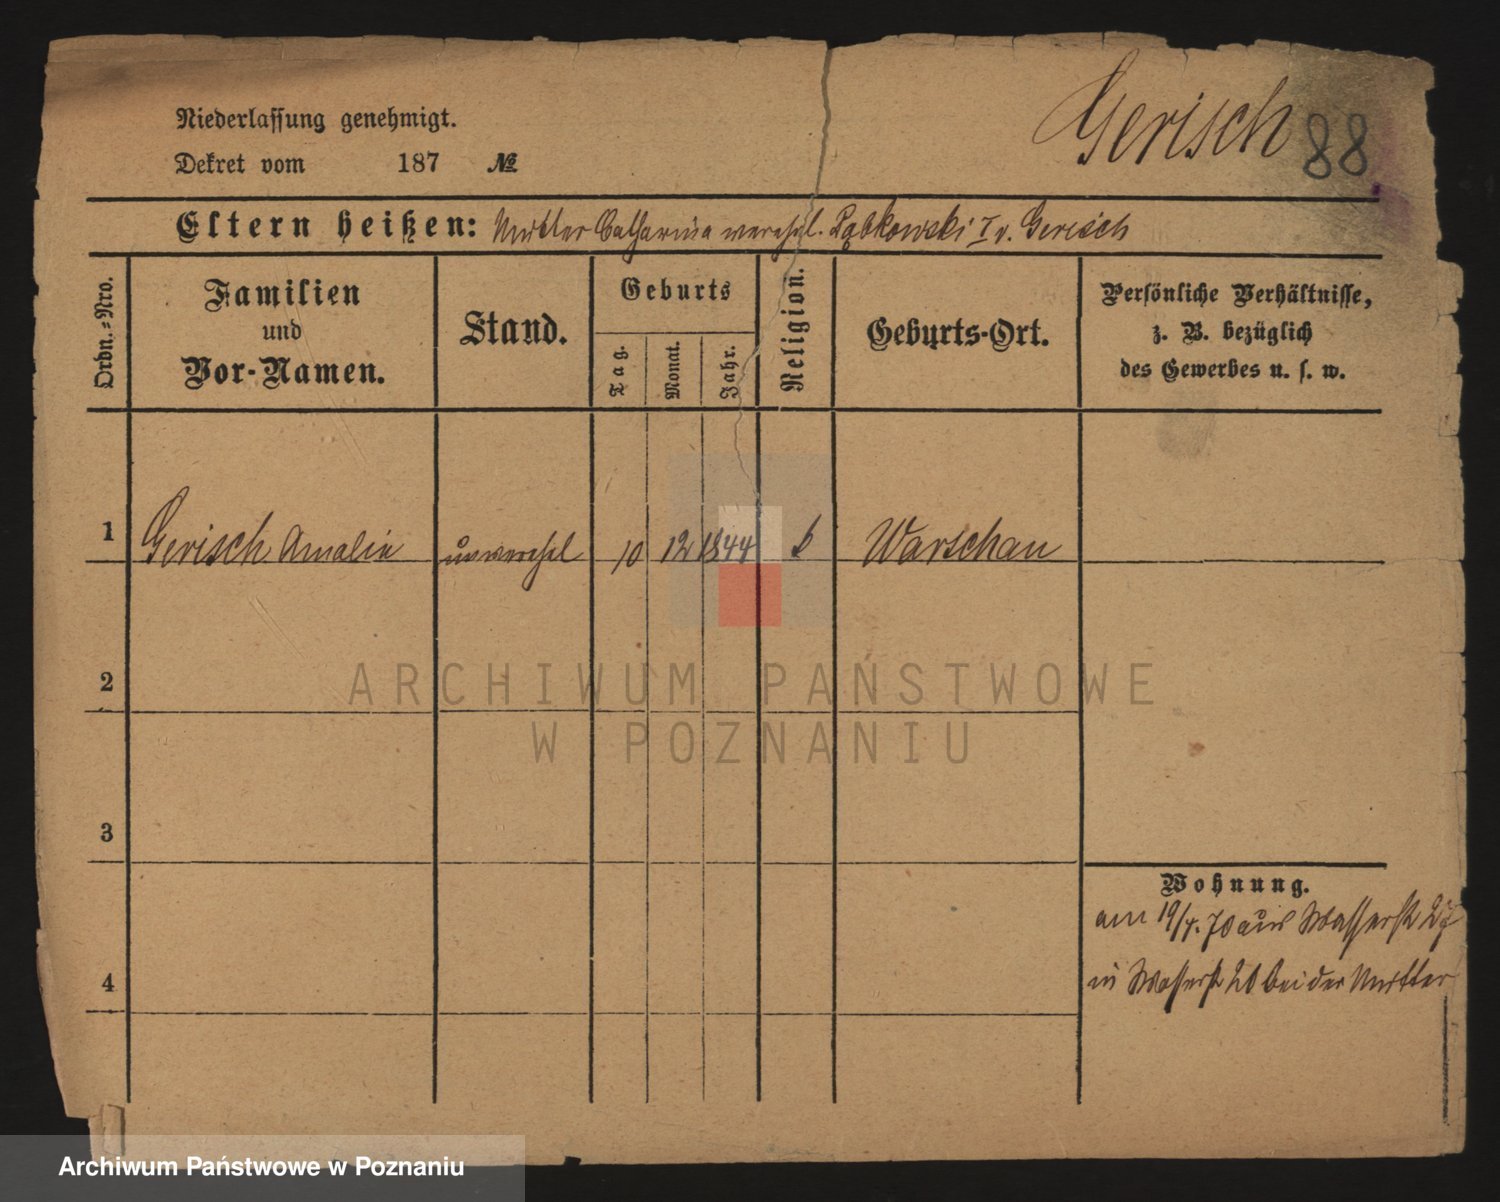 Niederlassung genehmigt.
Dekret vom 187 №
Gerisch 88
Eltern heißen: Mutter Catharina verehel. Łabkowski I v. Gerisch
Ordn.-Nro.
Familien
und
Vor-Namen.
Stand.
Geburts
Tag.
Monat.
Jahr.
Religion.
Geburts-Ort.
Persönliche Verhältnisse,
z. B. bezüglich
des Gewerbes u. s. w.
1 Gerisch Amalie unverehel 10 12 1844 Warschau
2
ARCHIWUM PAŃSTWOWE
W POZNANIU
3
Wohnung.
am 19/4. 70 aus Wasserstr 27
4
in Wasserstr 28 bei der Mutter
Archiwum Państwowe w Poznaniu